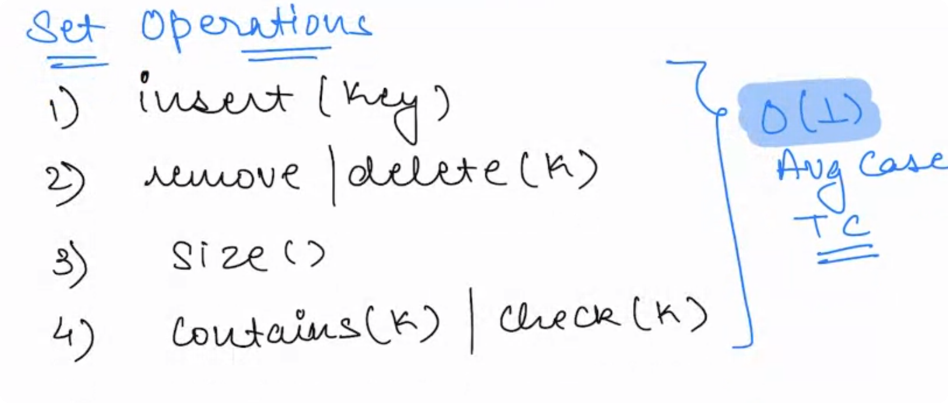 Set Operations
1) insert (Key)
2) remove | delete (K)
3) size()
4) contains(K) | check (K)
O(1)
Avg Case
TC